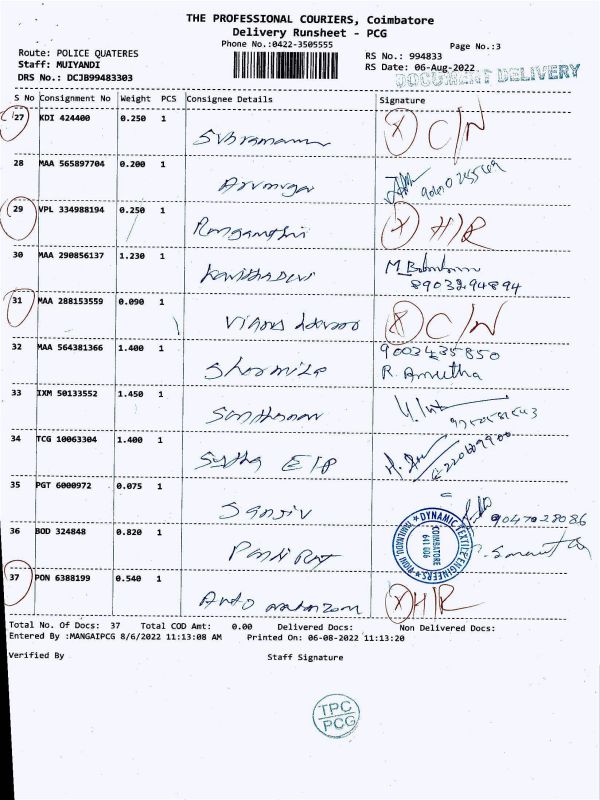 THE PROFESSIONAL COURIERS, Coimbatore
Delivery Runsheet - PCG
Phone No.:0422-3505555
Page No.:3
Route: POLICE QUATERES
Staff: MUIYANDI
DRS No.: DCJB99483303
RS No.: 994833
RS Date: 06-Aug-2022
DOCUMENT DELIVERY
S No Consignment No Weight PCS Consignee Details Signature
27 KDI 424400 0.250 1 X C/N
28 MAA 565897704 0.200 1 Arumuga
29 VPL 334988194 0.250 1 X H/R
30 MAA 290856137 1.230 1 Kavithadevi
8903294894
31 MAA 288153559 0.090 1 X C/N
32 MAA 564381366 1.400 1 Sharmila 9003435850
R. Amutha
33 IXM 50133552 1.450 1 Santhanam
34 TCG 10063304 1.400 1
35 PGT 6000972 0.075 1 Sanjiv 9047028086
36 BOD 324848 0.820 1
DYNAMIC TEXTILE ENGINEERS
COIMBATORE
641 026
37 PON 6388199 0.540 1 X H/R
Total No. Of Docs: 37 Total COD Amt: 0.00 Delivered Docs: Non Delivered Docs:
Entered By :MANGAIPCG 8/6/2022 11:13:08 AM Printed On: 06-08-2022 11:13:20
Verified By Staff Signature
TPC
PCG